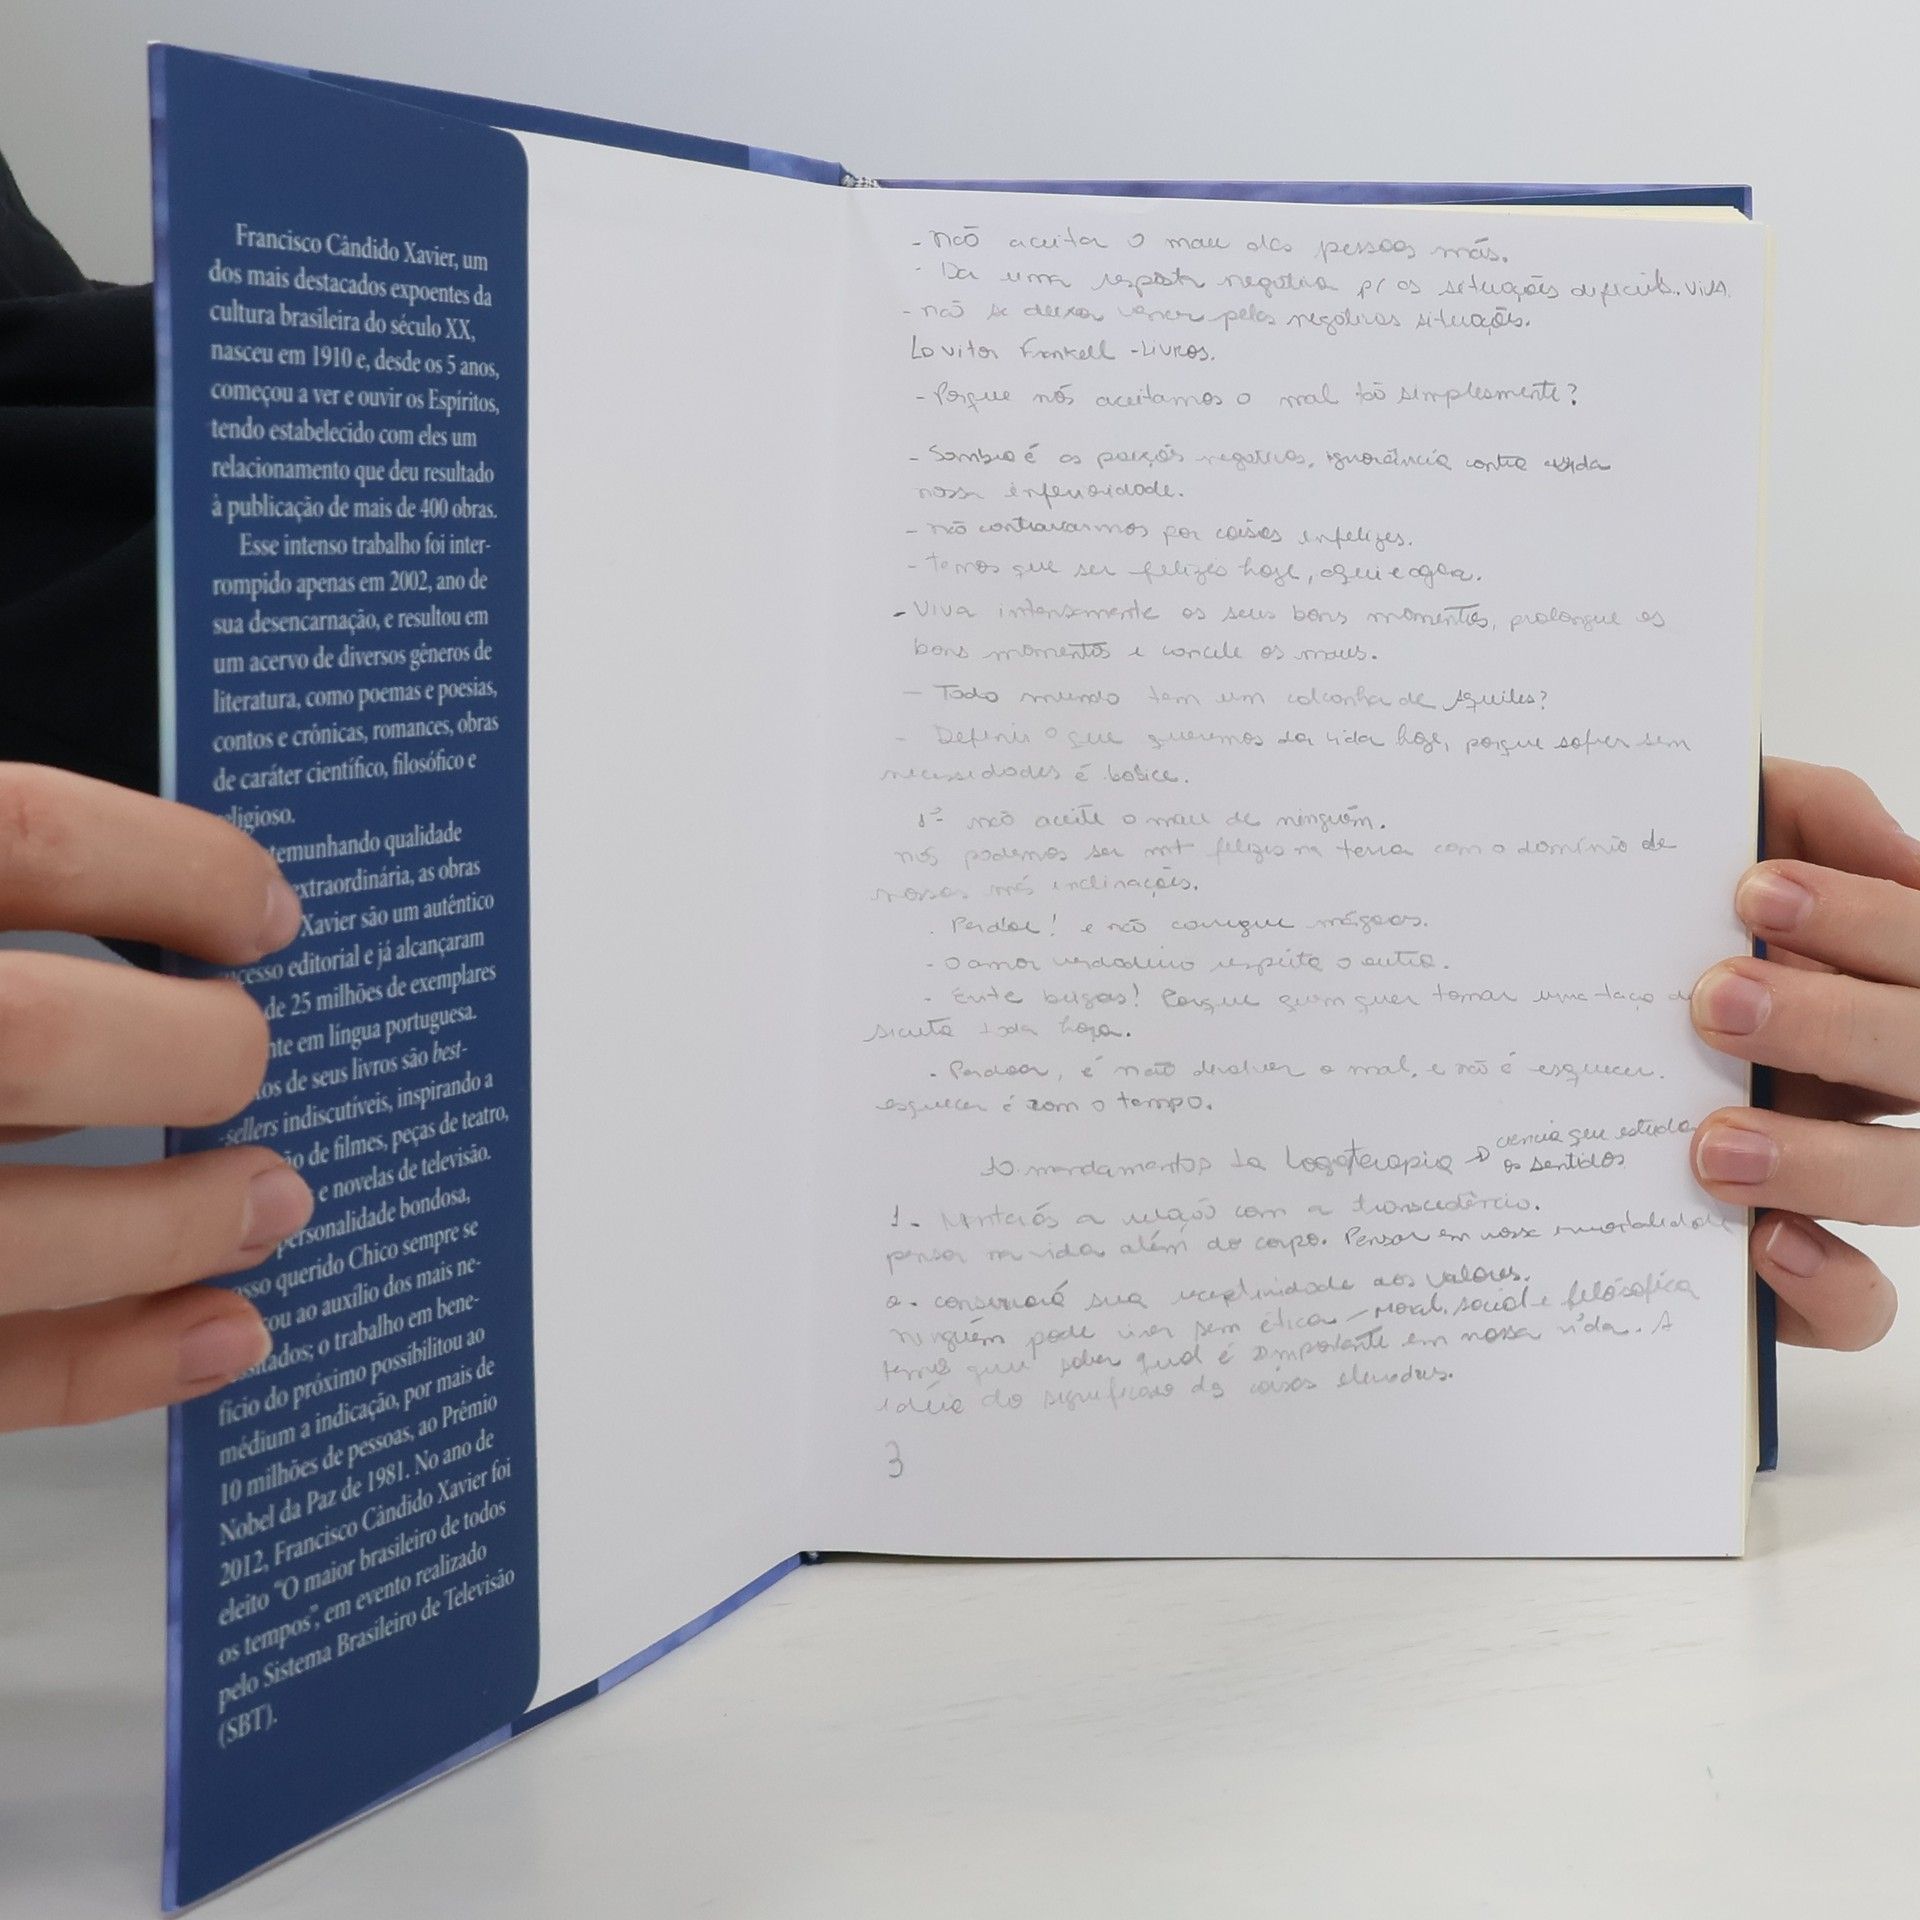 Francisco Cândido Xavier, um
dos mais destacados expoentes da
cultura brasileira do século XX,
nasceu em 1910 e, desde os 5 anos,
começou a ver e ouvir os Espíritos,
tendo estabelecido com eles um
relacionamento que deu resultado
à publicação de mais de 400 obras.
Esse intenso trabalho foi inter-
rompido apenas em 2002, ano de
sua desencarnação, e resultou em
um acervo de diversos gêneros de
literatura, como poemas e poesias,
contos e crônicas, romances, obras
de caráter científico, filosófico e
ligioso.
temunhando qualidade
extraordinária, as obras
Xavier são um autêntico
cesso editorial e já alcançaram
de 25 milhões de exemplares
nte em língua portuguesa.
os de seus livros são best-
-sellers indiscutíveis, inspirando a
ão de filmes, peças de teatro,
e novelas de televisão.
personalidade bondosa,
osso querido Chico sempre se
ou ao auxílio dos mais ne-
itados; o trabalho em bene-
fício do próximo possibilitou ao
médium a indicação, por mais de
10 milhões de pessoas, ao Prêmio
Nobel da Paz de 1981. No ano de
2012, Francisco Cândido Xavier foi
eleito “O maior brasileiro de todos
os tempos”, em evento realizado
pelo Sistema Brasileiro de Televisão
(SBT).
- não aceitar o mau das pessoas más.
- Da uma resposta negativa p/ as situações difíceis.
- não se deixar vencer pelas negativas situações.
Vitor Frankell - Livros.
- Porque nós aceitamos o mal tão simplesmente?
- Sombra é as negativas, ignorância contra
nossa inferioridade.
- não por coisas infelizes.
- temos que ser felizes hoje, aqui e agora.
- Viva intensamente os seus bons momentos, prolongue os
bons momentos e cancele os maus.
- Todo mundo tem um calcanhar de Aquiles?
- Definir o que queremos da vida hoje, porque sofrer sem
necessidades é
1º não aceite o mau de ninguém.
nós podemos ser mt felizes na terra com o domínio de
nossas más inclinações.
. Perdoe! e não carregue mágoas.
- O amor verdadeiro respeita o outro.
- Evite brigas! Porque quem quer tomar uma taça d
sicuta toda hora.
- Perdoar, é não devolver o mal, e não é esquecer.
esquecer é com o tempo.
10 mandamentos da Logoterapia → ciencia que estuda
os sentidos
1 - a relação com a transcedência.
pensar na vida além do corpo. Pensar em nossa imortalidade
2. conservará sua receptividade aos valores.
ninguém pode viver sem ética - moral, social e filosófica
temos que saber qual é importante em nossa vida. A
idéia do significado das coisas elevadas.
3